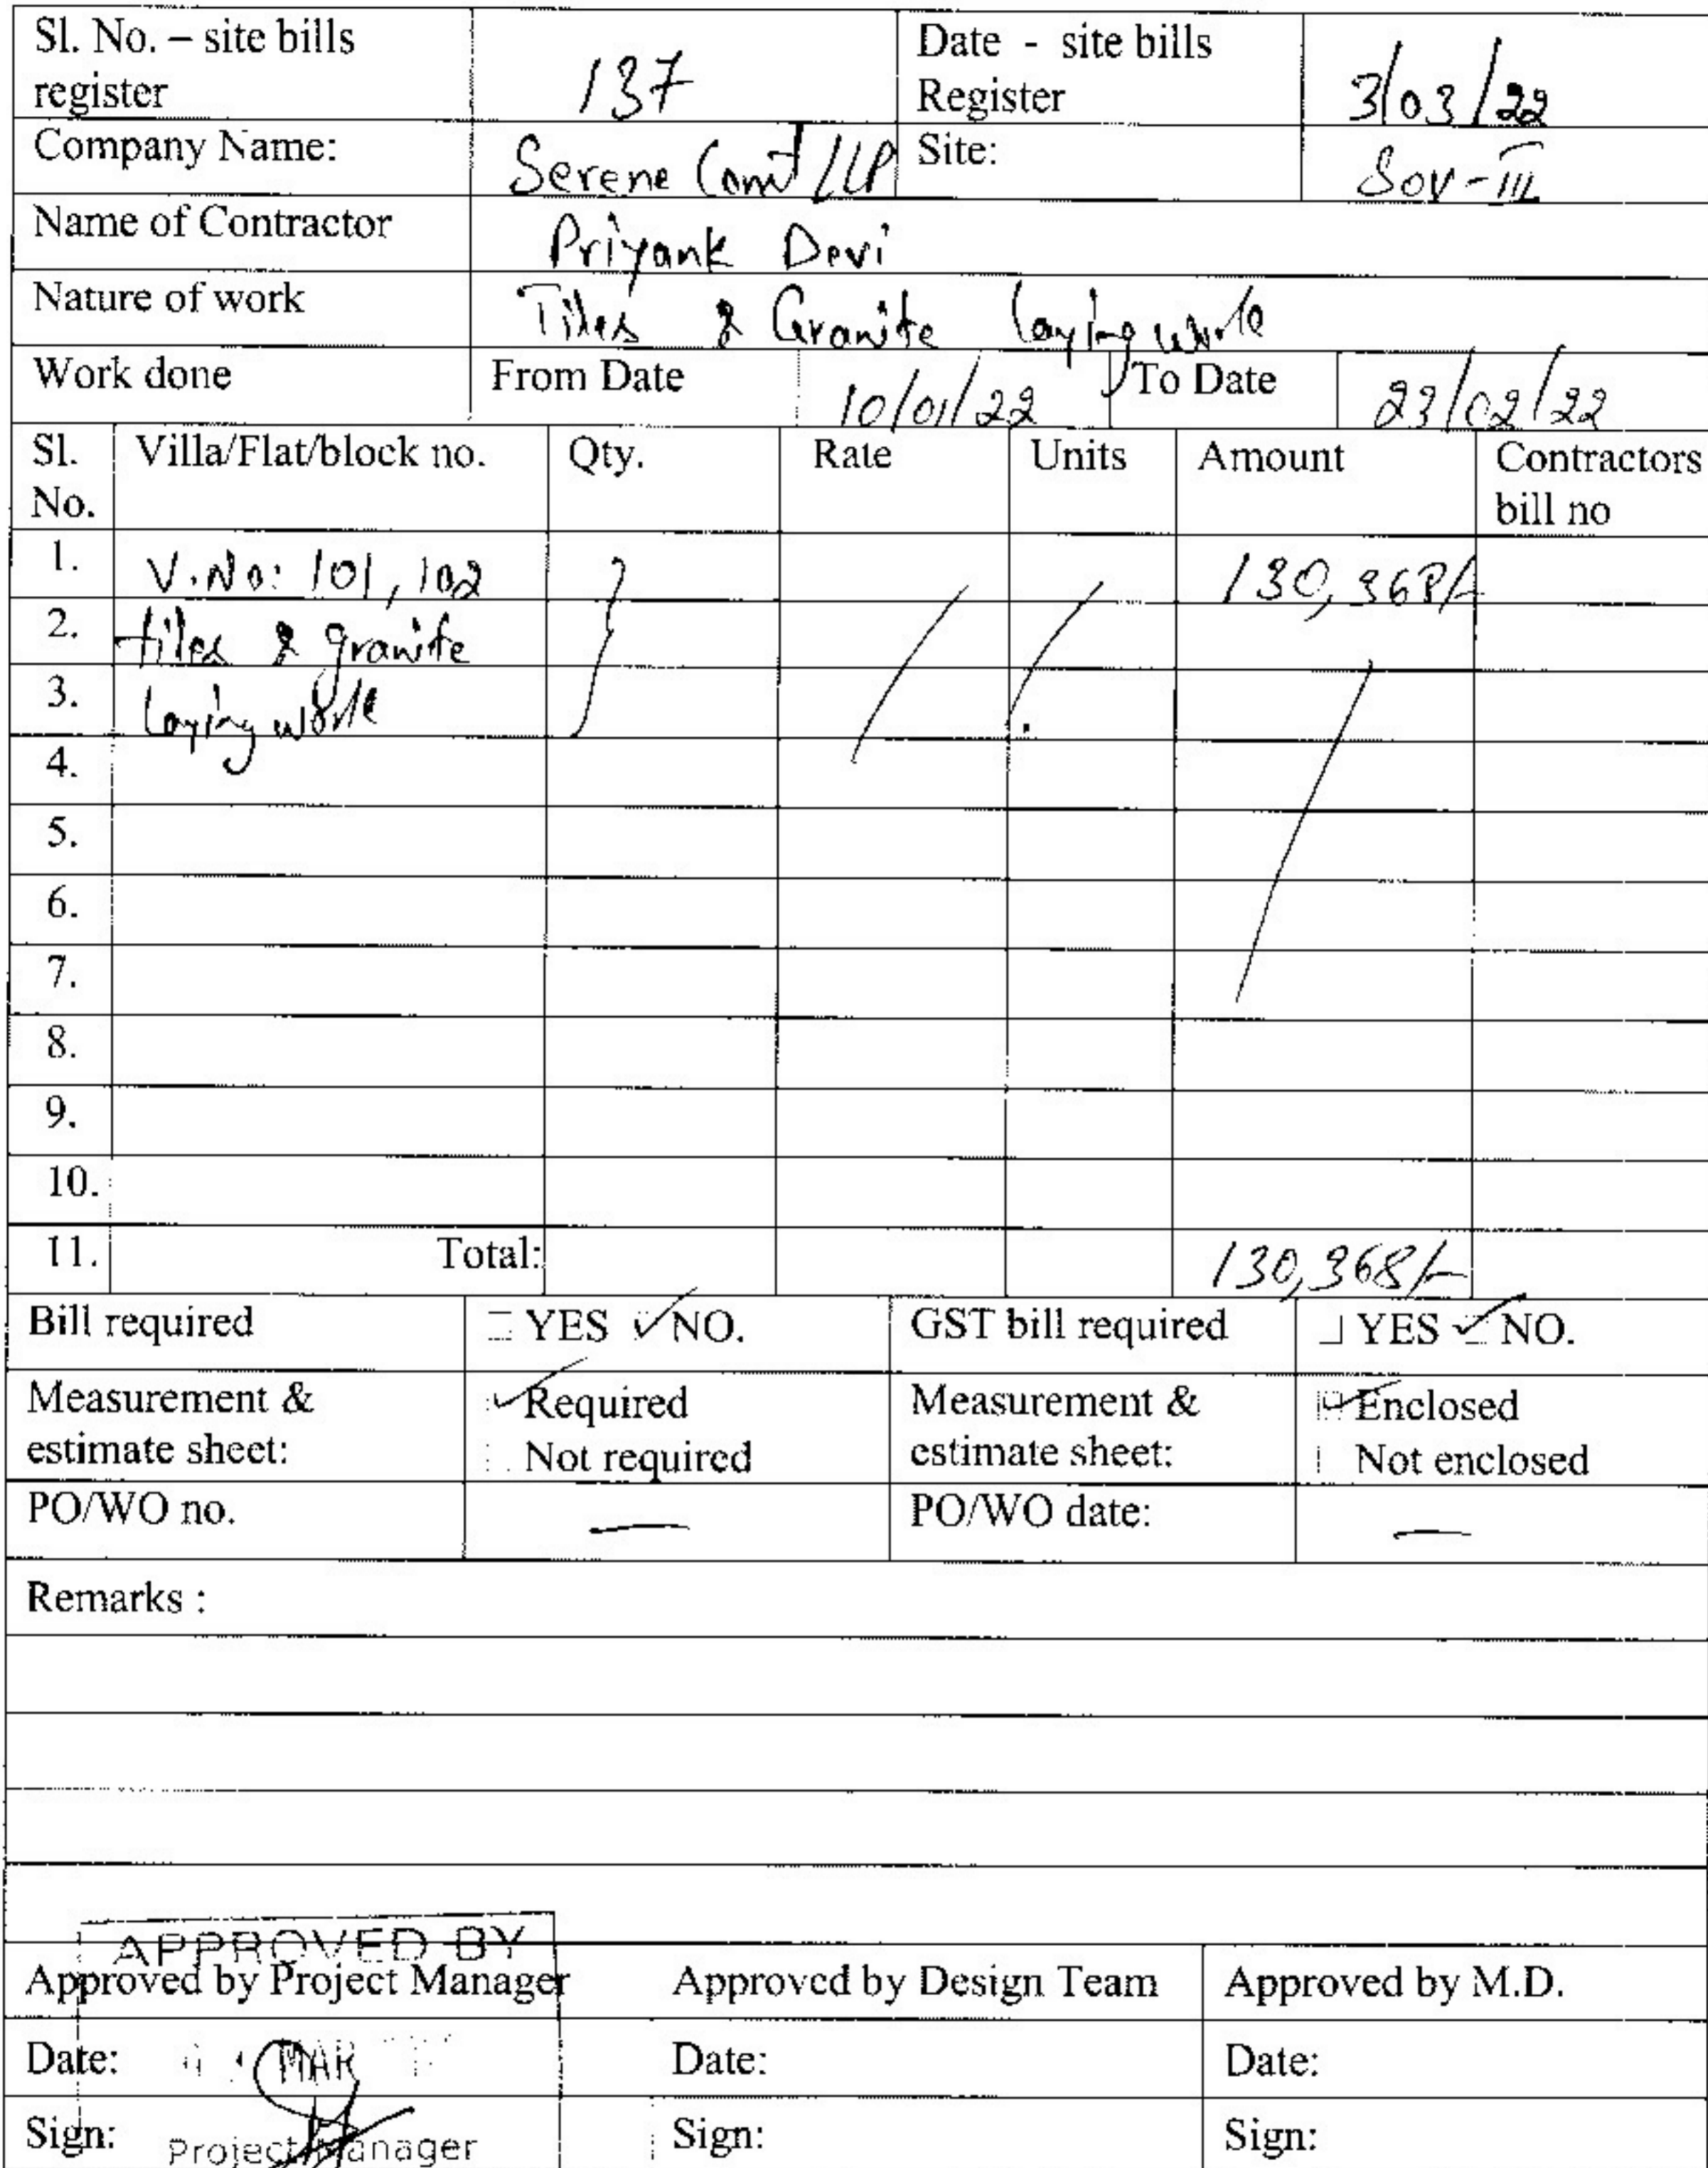 Sl. No. – site bills register 137 Date - site bills Register 3/03/22
Company Name: Serene Const LLP Site: SOV-III
Name of Contractor Priyank Devi
Nature of work Tiles & Granite laying work
Work done From Date 10/01/22 To Date 23/02/22
Sl. No. Villa/Flat/block no. Qty. Rate Units Amount Contractors bill no
1. V.No: 101, 102 130,368/-
2. tiles & granite
3. laying work
4.
5.
6.
7.
8.
9.
10.
11. Total: 130,368/-
Bill required YES NO. GST bill required YES NO.
Measurement & estimate sheet: Required Not required Measurement & estimate sheet: Enclosed Not enclosed
PO/WO no. — PO/WO date: —
Remarks :
APPROVED BY
Approved by Project Manager Approved by Design Team Approved by M.D.
Date: MAR Date: Date:
Sign: Project Manager Sign: Sign: